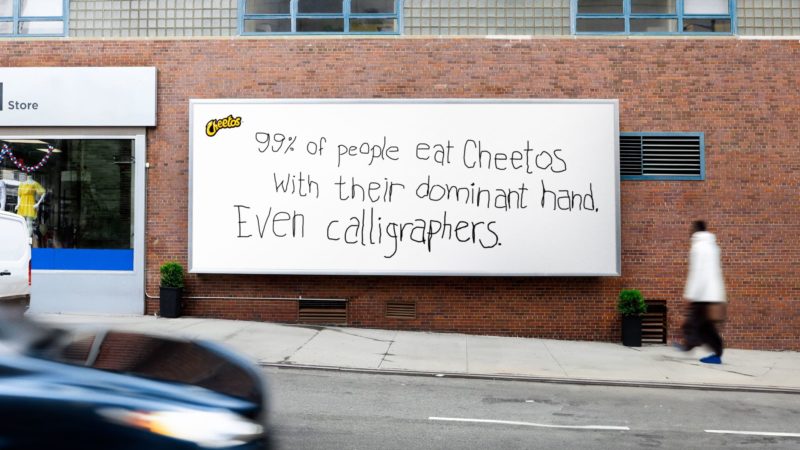 Store
Cheetos
99% of people eat Cheetos
with their dominant hand.
Even calligraphers.